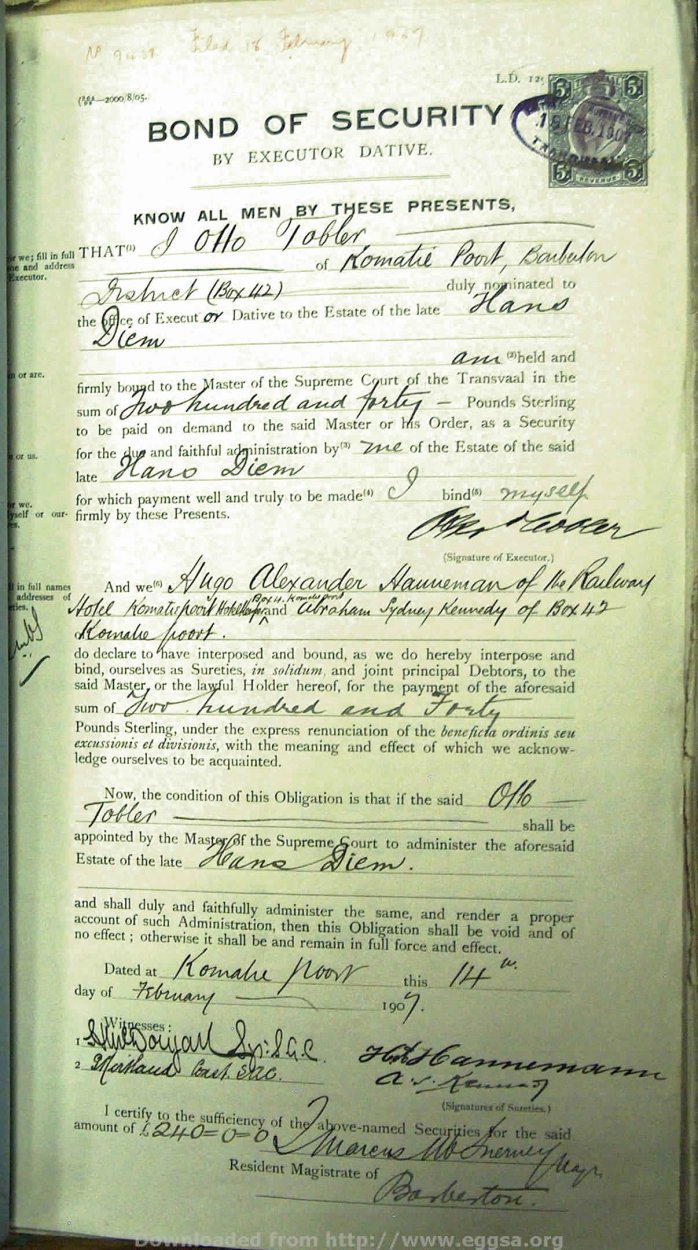 Filed 18 February 1907
L.D. 12
—2000/8/05.
18 FEB. 1907
BOND OF SECURITY
BY EXECUTOR DATIVE.
REVENUE
KNOW ALL MEN BY THESE PRESENTS,
or we; fill in full
THAT(1) I Otto Tobler
and address
Executor.
of Komatie Poort, Barberton
District (Box 42) duly nominated to
the office of Executor Dative to the Estate of the late Hans
Diem
am (2)held and
or are.
firmly bound to the Master of the Supreme Court of the Transvaal in the
sum of Two hundred and forty — Pounds Sterling
to be paid on demand to the said Master or his Order, as a Security
or us.
for the due and faithful administration by(3) me of the Estate of the said
late Hans Diem
or we.
for which payment well and truly to be made(4) I bind(5) myself
myself or our-
firmly by these Presents.
(Signature of Executor.)
in full names
And we(6) Hugo Alexander Hanneman of the Railway
addresses of
Hotel Komatiepoort Box 42 Komatie poort and Abraham Sydney Kennedy of Box 42
Komatie poort.
do declare to have interposed and bound, as we do hereby interpose and
bind, ourselves as Sureties, in solidum, and joint principal Debtors, to the
said Master, or the lawful Holder hereof, for the payment of the aforesaid
sum of Two hundred and Forty
Pounds Sterling, under the express renunciation of the beneficia ordinis seu
excussionis et divisionis, with the meaning and effect of which we acknow-
ledge ourselves to be acquainted.
Now, the condition of this Obligation is that if the said Otto —
Tobler — shall be
appointed by the Master of the Supreme Court to administer the aforesaid
Estate of the late Hans Diem.
and shall duly and faithfully administer the same, and render a proper
account of such Administration, then this Obligation shall be void and of
no effect; otherwise it shall be and remain in full force and effect.
Dated at Komatie poort this 14th.
day of February 1907.
Witnesses:
1
2
S.A.C.
Hannemann
A. S. Kennedy
(Signatures of Sureties.)
I certify to the sufficiency of the above-named Securities for the said
amount of £240=0=0
Resident Magistrate of
Barberton.
Downloaded from http://www.eggsa.org